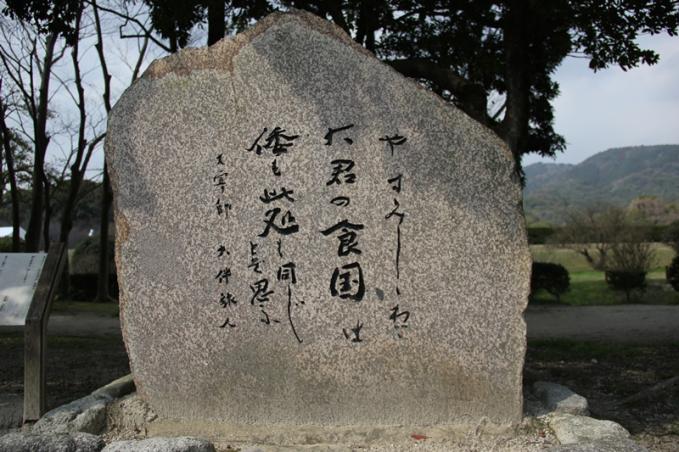 やすみしゝわご
大君の食国は
倭も此処も同じ
とぞ思ふ
大宰帥　大伴旅人